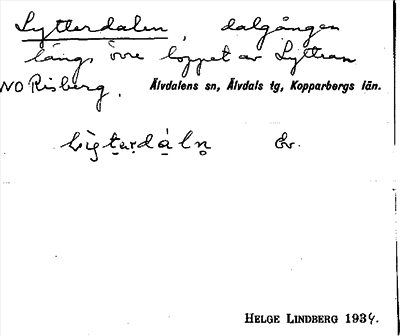 Lytterdalen, dalgången
längs övre loppet av Lyttran
NO Risberg. Älvdalens sn, Älvdals tg, Kopparbergs län.
Öv.
HELGE LINDBERG 1934.